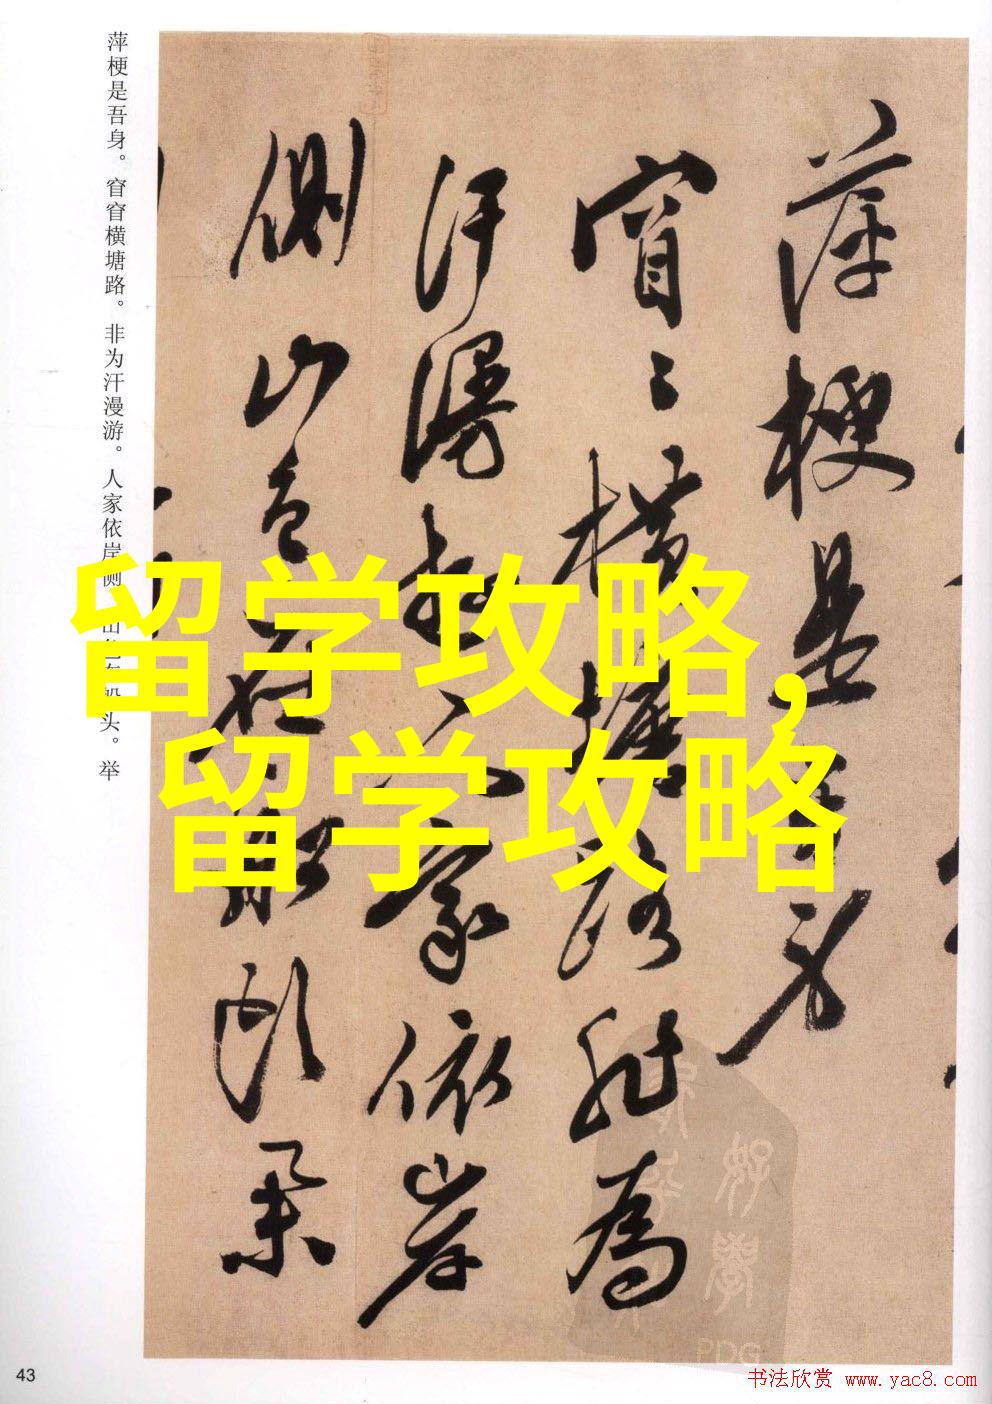 萍梗是吾身。窅窅横塘路。非为汗漫游。人家依岸侧
头。举
留学攻略,
留学攻略
萍梗是
身
窅〻横塘路非为
汗漫游人家依岸
侧山色在船头
43
PDG
书法欣赏 www.yac8.com